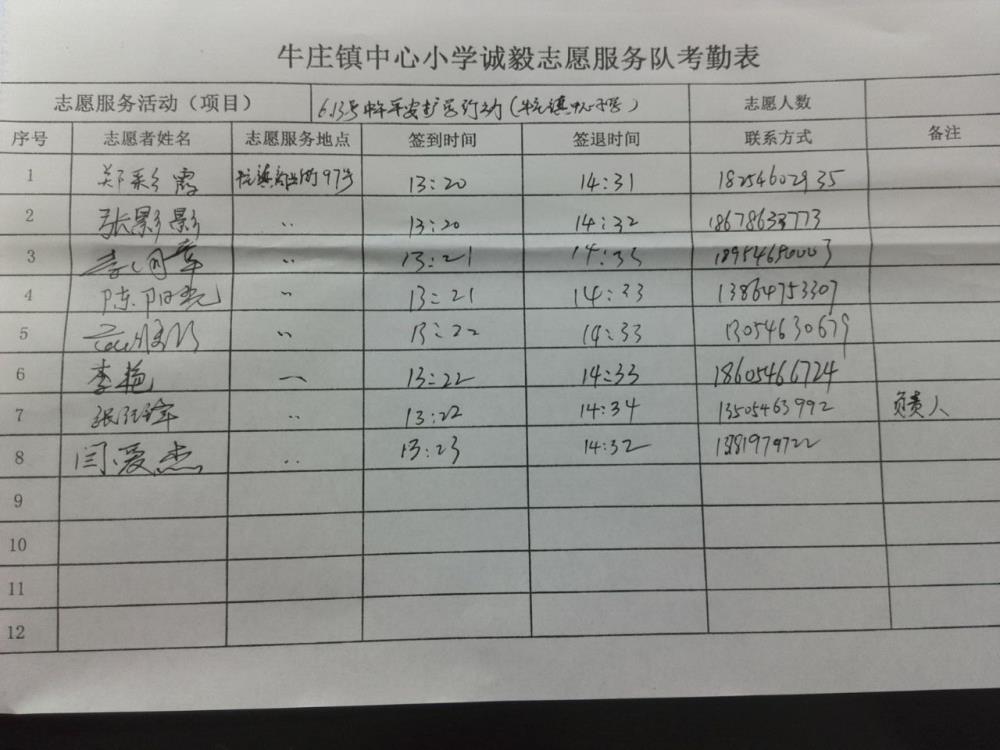 牛庄镇中心小学诚毅志愿服务队考勤表
志愿服务活动（项目） 6.13号中午平安护学行动（牛庄镇中心小学） 志愿人数
序号 志愿者姓名 志愿服务地点 签到时间 签退时间 联系方式 备注
1 郑彩霞 97号 13:20 14:31 18254602935
2 张影影 〃 13:20 14:32 18678633773
3 〃 13:21 14:33 18954650003
4 陈阳光 〃 13:21 14:33 13864753307
5 〃 13:22 14:33 13054630679
6 李艳 〃 13:22 14:33 18605466724
7 〃 13:22 14:34 13505463992 负责人
8 闫爱杰 〃 13:23 14:32
9
10
11
12